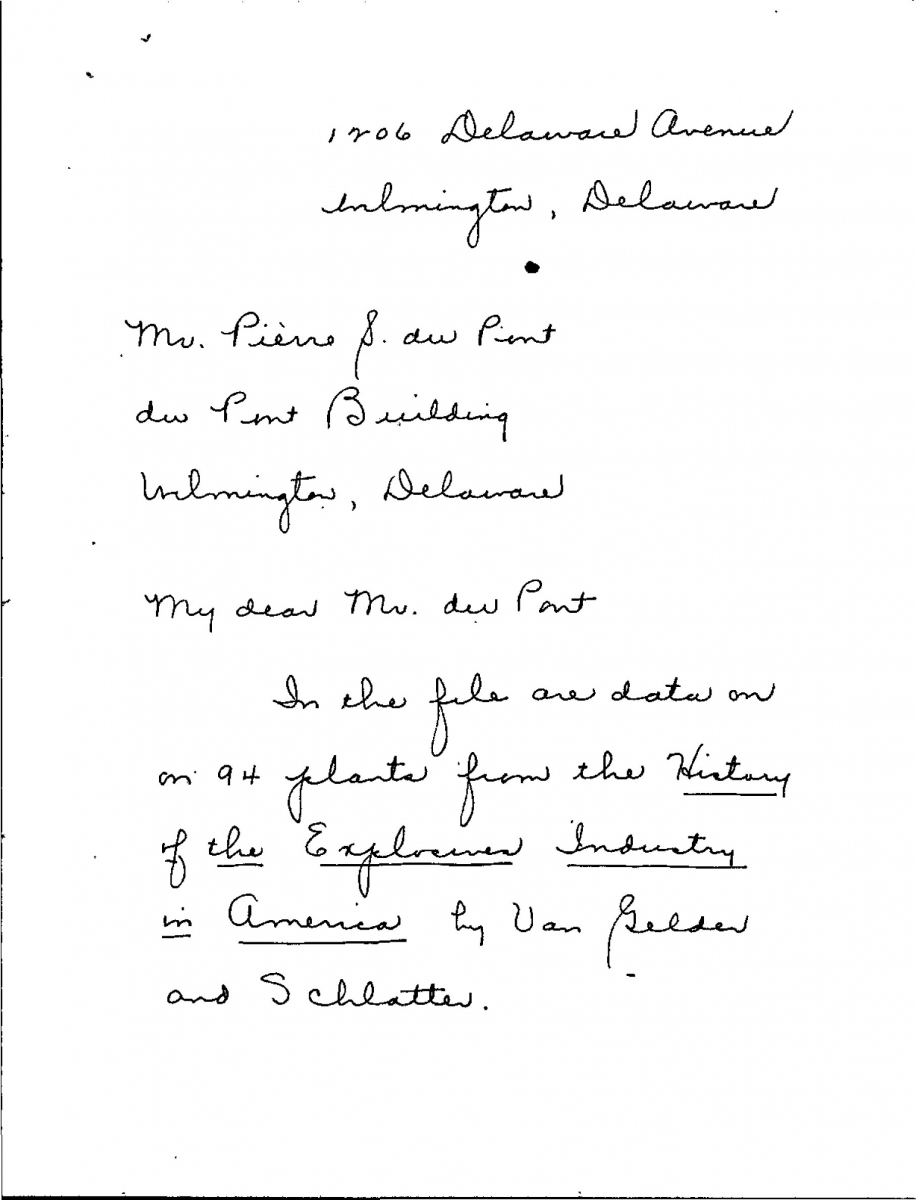 1206 Delaware Avenue
Wilmington, Delaware
Mr. Pièrre S. du Pont
du Pont Building
Wilmington, Delaware
My dear Mr. du Pont
In the file are data on
on 94 plants from the History
of the Explosives Industry
in America by Van Gelder
and Schlatter.